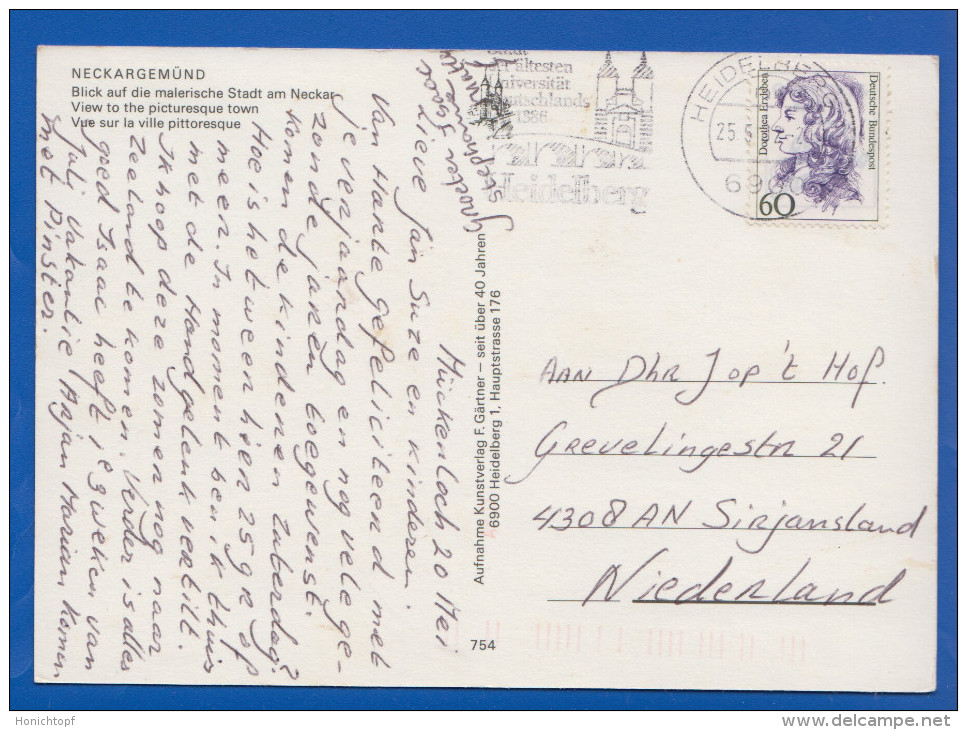 NECKARGEMÜND
Blick auf die malerische Stadt am Neckar
View to the picturesque town
Vue sur la ville pittoresque
Mückenloch 20 Mei.
Lieve Jan Suze en kinderen.
Van Harte gefeliciteerd met
je verjaardag en nog vele ge-
zonde jaren toegewenst.
Komen de kinderen Zaterdag?
Hoe is het weer hier 25 gr of
meer. In moment ben ik thuis
met de Hand gelenk verkilt.
Ik hoop deze zomer nog naar
Zeeland te komen. Verder is alles
goed Isaac heeft ie 3 weken van
Julij Vakantie Arjan Marian komen
met Pinster.
Groeten
Aufnahme Kunstverlag F. Gärtner – seit über 40 Jahren
6900 Heidelberg 1, Hauptstrasse 176
754
Stadt
der ältesten
Universität
Deutschlands
1386
Heidelberg
HEIDELBERG
25.
69
Dorothea Erxleben
Deutsche Bundespost
60
Aan Dhr Jop 't Hof.
Grevelingestr 21
4308 AN Sirjansland
Niederland
Honichtopf
www.delcampe.net